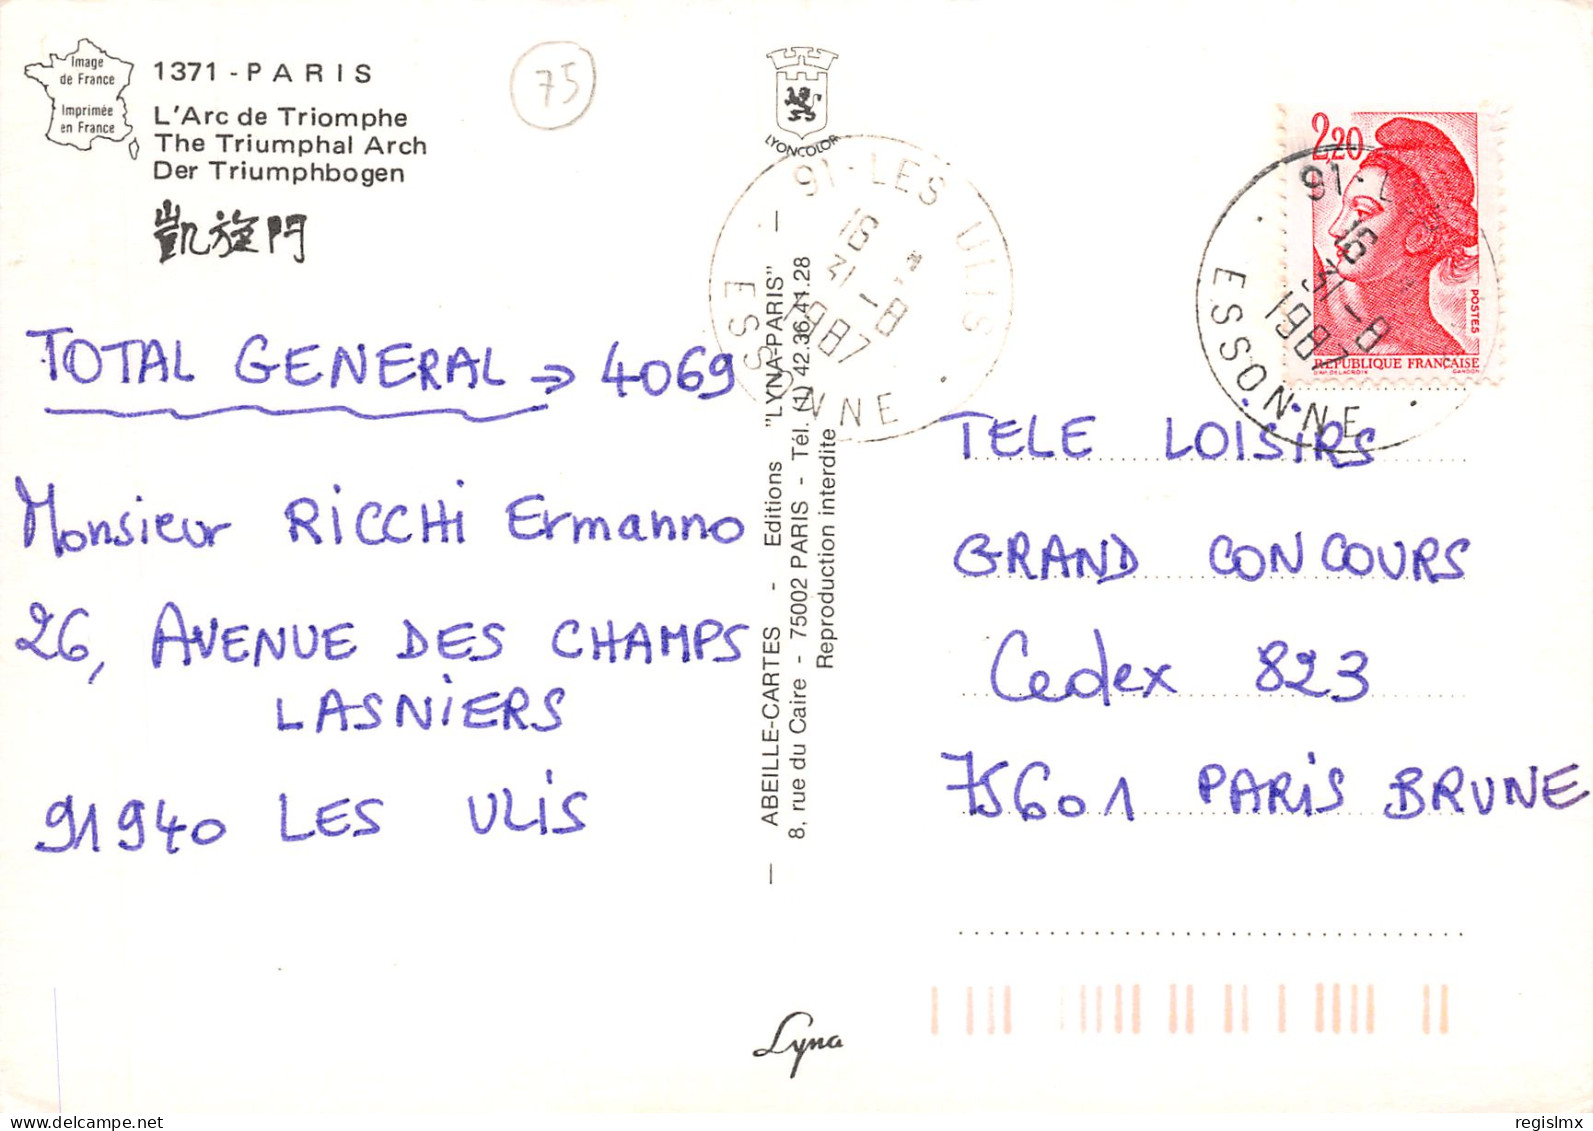 Image
de France
Imprimée
en France
1371 - PARIS
L'Arc de Triomphe
The Triumphal Arch
Der Triumphbogen
凱旋門
75
LYONCOLOR
91-LES ULIS
16
31-8
1987
ESSONNE
2,20
POSTES
RÉPUBLIQUE FRANÇAISE
D'AP. DELACROIX GANDON
91-L
16
31-8
1987
ESSONNE
TOTAL GENERAL => 4069
Monsieur RICCHI Ermanno
26, AVENUE DES CHAMPS
LASNIERS
91940 LES ULIS
— ABEILLE-CARTES - Editions "LYNA-PARIS" —
8, rue du Caire - 75002 PARIS - Tél. (1) 42.36.41.28
Reproduction interdite
TELE LOISIRS
GRAND CONCOURS
Cedex 823
75601 PARIS BRUNE
Lyna
regislmx